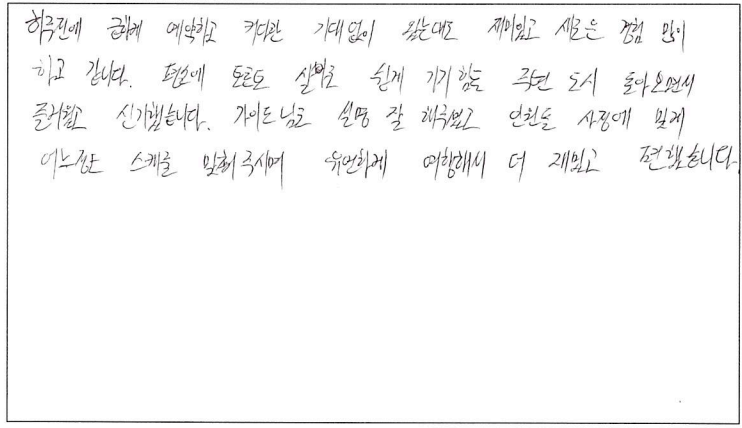 하루전에 급하게 예약하고 커다란 기대없이 왔는데도 재미있고 새로운 경험 많이
하고 갑니다. 평소에 토론토 살면서 쉽게 가기힘든 주변 도시 돌아보면서
즐거웠고 신기했습니다. 가이드님도 설명 잘 해주셨고 인원들 사정에 맞게
어느정도 스케쥴 맞춰주시며 유연하게 여행해서 더 재밌고 편했습니다.